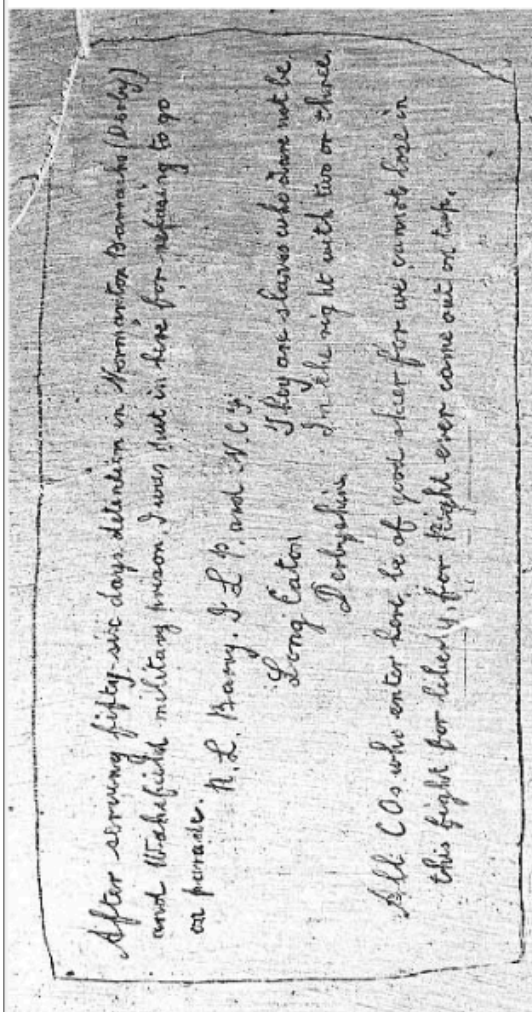 After serving fifty-six days detention in Normanton Barracks (Derby)
and Wakefield military prison, I was put in here for refusing to go
on parade.
N. L. Barry. I L P. and N. C. F.
Long Eaton
Derbyshire
They are slaves who dare not be
In the right with two or three.
All COs who enter here be of good cheer for we cannot lose in
this fight for liberty, for Right ever came out on top.